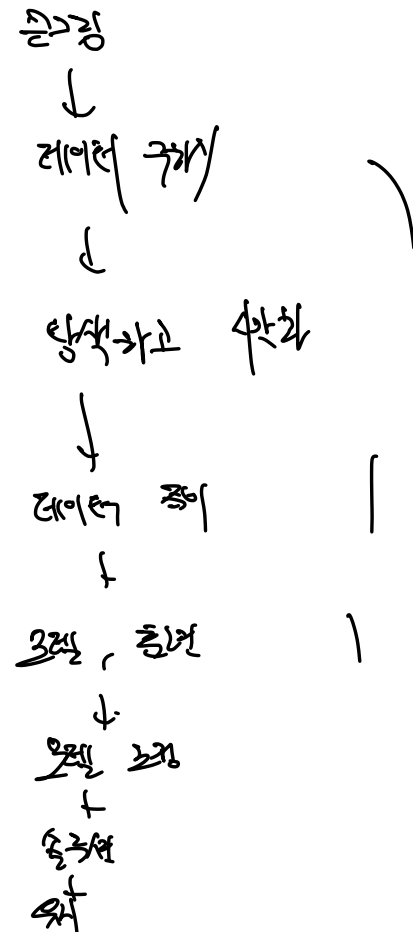 큰그림
데이터 구하기
탐색하고 시각화
데이터 준비
모델, 훈련
모델 조정
솔루션